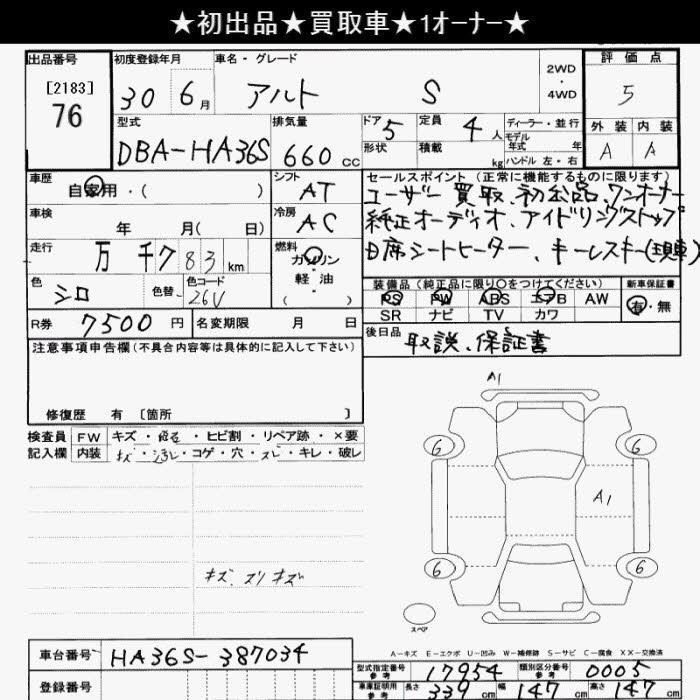 ★初出品★買取車★1オーナー★
出品番号 初度登録年月 車名・グレード 2WD・4WD 評価点
[2183] 76 30 6月 アルト S 5
型式 排気量 ドア 5 定員 4人 ディーラー・並行 外装 内装
DBA-HA36S 660cc 形状 積載 kg モデル年式 年 ハンドル 左・右 A A
車歴 自家用・( ) シフト AT セールスポイント(正常に機能するものに限ります)
ユーザー買取、初出品、ワンオーナー
車検 年 月( 日) 冷房 AC 純正オーディオ、アイドリングストップ
走行 万 千783km 燃料 ガソリン・軽油・( ) D席シートヒーター、キーレスキー(現車)
色 シロ 色替 色コード 26U
装備品(純正品に限り○をつけてください) 新車保証書
PS PW ABS エアB AW 有・無
SR ナビ TV カワ
R券 7500円 名変期限 月 日 後日品 取説、保証書
注意事項申告欄(不具合内容等は具体的に記入して下さい)
修復歴 有 〔箇所 〕
検査員 FW キズ・ ・ヒビ割・リペア跡・×要
記入欄 内装 キズ・ ・コゲ・穴・スレ・キレ・破レ
キズ、スリキズ
A1
6 6
A1
6 6
スペア
A-キズ E-エクボ U-凹み W-補修跡 S-サビ C-腐食 XX-交換済
車台番号 HA36S-387034
型式指定番号参考 17954 類別区分番号参考 0005
登録番号 車庫証明用参考 長さ 339cm 幅 147cm 高さ 147cm